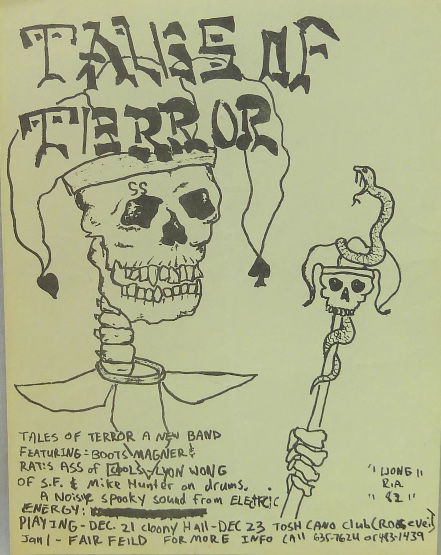 TALES OF
TERROR
SS
TALES OF TERROR A NEW BAND
FEATURING: BOOTS MAGNER &
RAT'S ASS of LYON WONG
OF S.F. & Mike Hunter on drums.
A Noisy spooky sound from ELECTRIC
ENERGY:
PLAYING - DEC. 21 Cloony Hall - DEC 23 TOSH CANO Club (Roosevelt)
Jan 1 - FAIR FEILD FOR MORE INFO CAll 635-7624 or 483-1439
"WONG"
R.A.
"82"